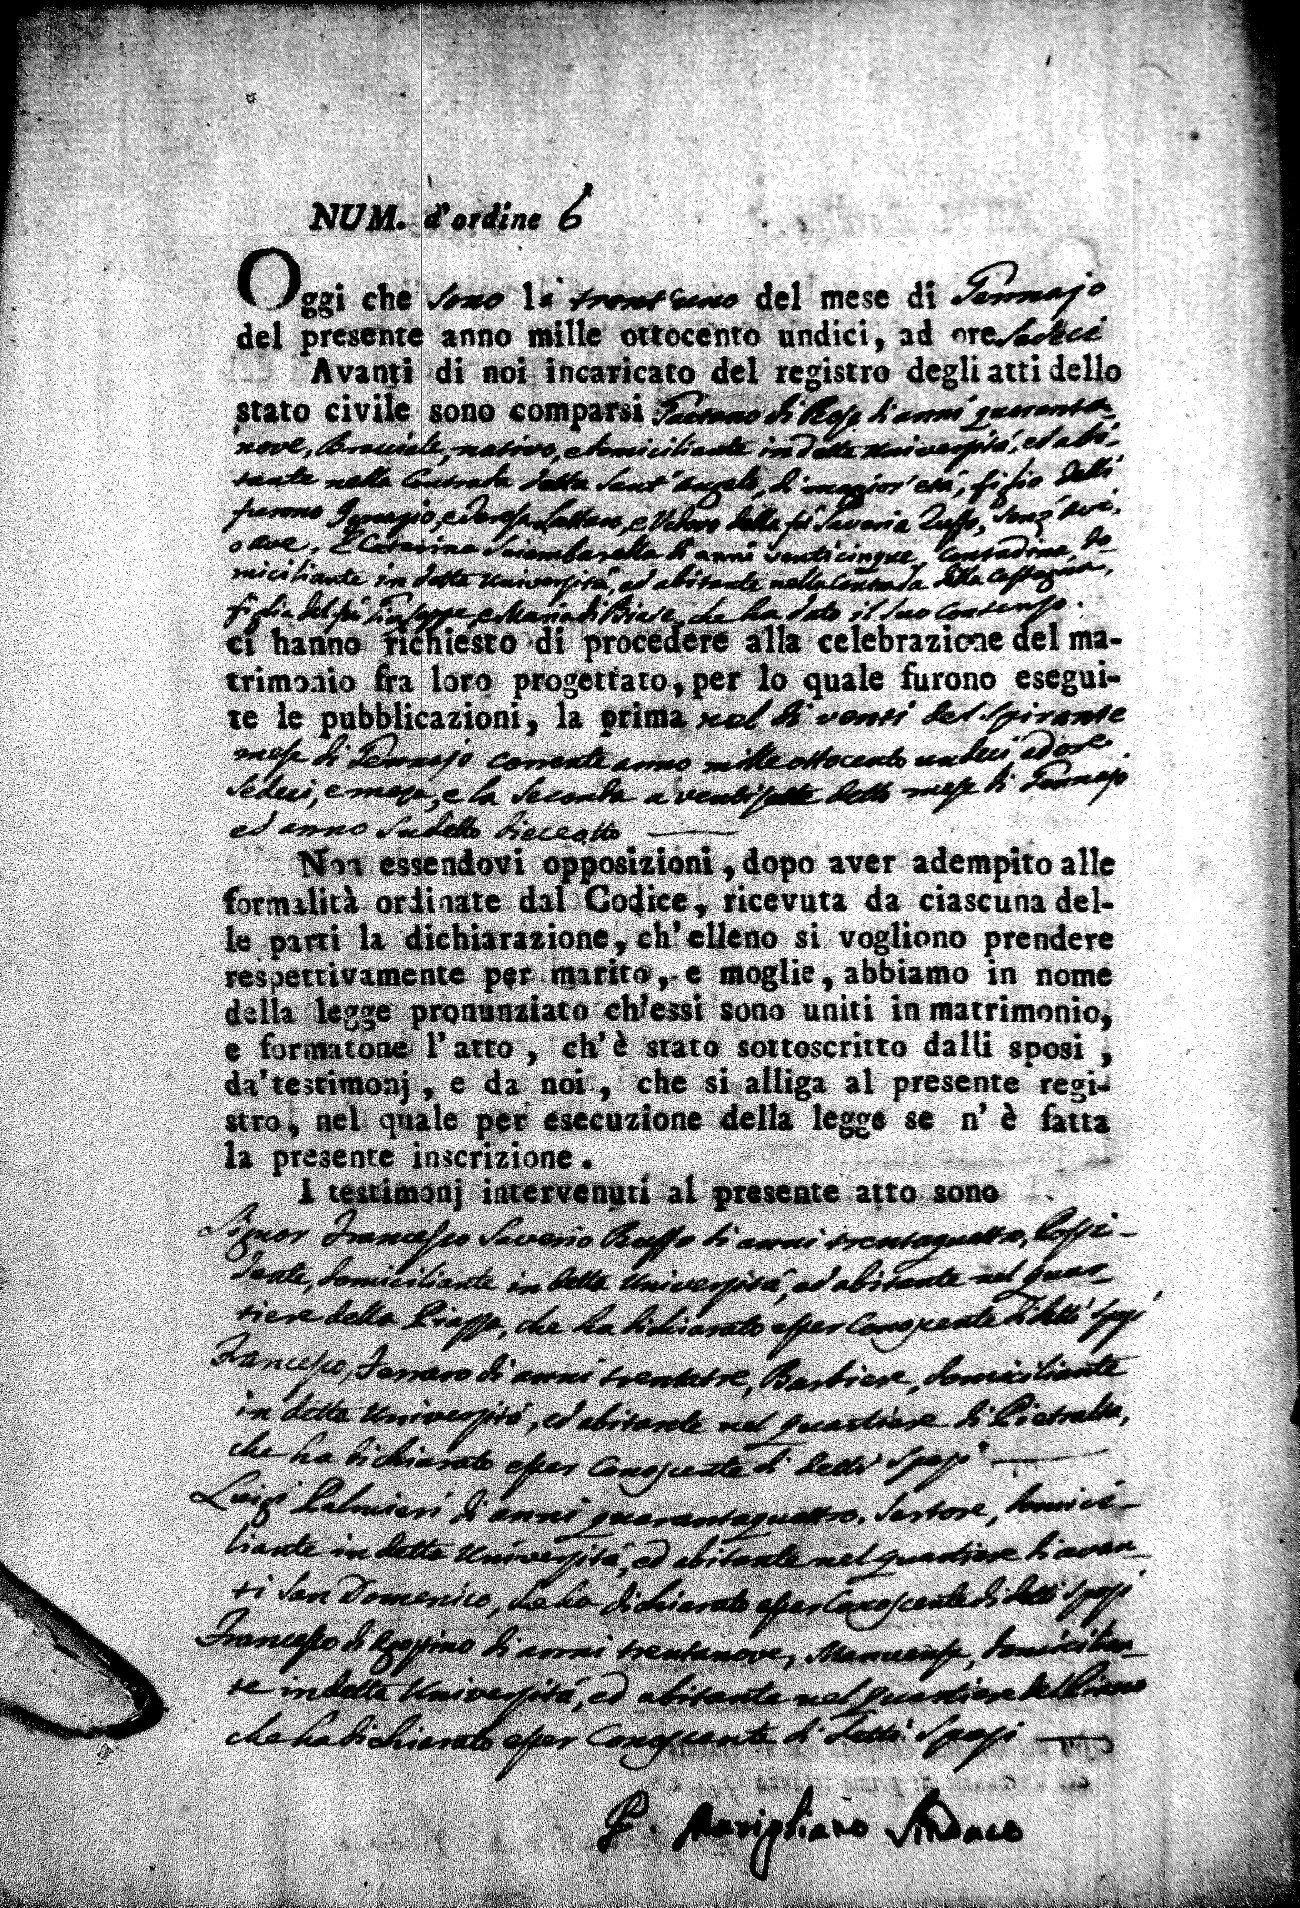 NUM. d'ordine 6
Oggi che sono li trent'uno del mese di Gennajo
del presente anno mille ottocento undici, ad ore sedeci
Avanti di noi incaricato del registro degli atti dello
stato civile sono comparsi Gaetano di Rose di anni quaranta-
nove, Bracciale, nativo, e domiciliante in detta Università, ed abi-
tante nella Contrada detta Sant'Angelo, di maggior età, figlio delli
furono Ignazio, e Teresa Lattaro, e Vedovo della fù Saveria Zuffo, senz'avi,
o ave. E Catarina Sciambarella di anni venticinque, Contadina, do-
miciliante in detta Università, ed abitante nella Contrada detta
figlia del fù Giuseppe, e Maria di Biase, che ha dato il suo Consenso.
ci hanno richiesto di procedere alla celebrazione del ma-
trimonio fra loro progettato, per lo quale furono esegui-
te le pubblicazioni, la prima nel di venti del spirante
mese di Gennajo corrente anno mille ottocento undeci ad ore
sedeci, e meza, e la seconda a ventisette detto mese di Gennajo
ed anno sudetto dieceotto
Non essendovi opposizioni, dopo aver adempito alle
formalità ordinate dal Codice, ricevuta da ciascuna del-
le parti la dichiarazione, ch'elleno si vogliono prendere
respettivamente per marito, e moglie, abbiamo in nome
della legge pronunziato ch'essi sono uniti in matrimonio,
e formatone l'atto, ch'è stato sottoscritto dalli sposi,
da'testimonj, e da noi, che si alliga al presente regi-
stro, nel quale per esecuzione della legge se n'è fatta
la presente inscrizione.
I testimonj intervenuti al presente atto sono
Signor Francesco Saverio Ruffo di anni trentaquattro, Possi-
dente, domiciliante in detta Università, ed abitante nel quar-
tiere della Piazza, che ha dichiarato esser Conoscente di detti sposi
Francesco Ferraro di anni trentatre, Barbiere, domiciliante
in detta Università, ed abitante nel quartiere di Pietralta,
che ha dichiarato esser Conoscente di detti Sposi
Luigi Palmieri di anni quarantaquattro, Sartore, domici-
liante in detta Università, ed abitante nel quartiere di avan-
ti San Domenico, che ha dichiarato esser Conoscente di detti sposi
Francesco di anni trentanove, domicilian-
te in detta Università, ed abitante nel quartiere del Piano
che ha dichiarato esser Conoscente di detti Sposi
P. Marigliano Sindaco